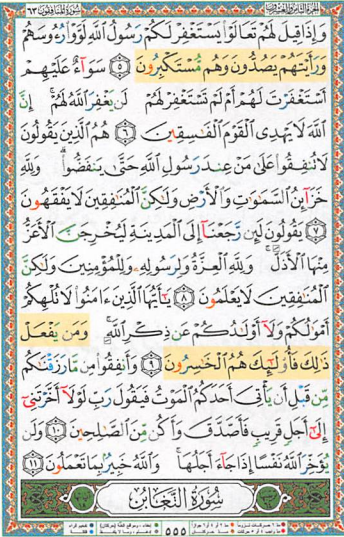 سُورَةُ المُنَافِقُونَ ٦٣
وَإِذَا قِيلَ لَهُمْ تَعَالَوْا۟ يَسْتَغْفِرْ لَكُمْ رَسُولُ ٱللَّهِ لَوَّوْا۟ رُءُوسَهُمْ
وَرَأَيْتَهُمْ يَصُدُّونَ وَهُم مُّسْتَكْبِرُونَ ٥ سَوَآءٌ عَلَيْهِمْ
أَسْتَغْفَرْتَ لَهُمْ أَمْ لَمْ تَسْتَغْفِرْ لَهُمْ لَن يَغْفِرَ ٱللَّهُ لَهُمْ ۚ إِنَّ
ٱللَّهَ لَا يَهْدِى ٱلْقَوْمَ ٱلْفَـٰسِقِينَ ٦ هُمُ ٱلَّذِينَ يَقُولُونَ
لَا تُنفِقُوا۟ عَلَىٰ مَنْ عِندَ رَسُولِ ٱللَّهِ حَتَّىٰ يَنفَضُّوا۟ ۗ وَلِلَّهِ
خَزَآئِنُ ٱلسَّمَـٰوَٰتِ وَٱلْأَرْضِ وَلَـٰكِنَّ ٱلْمُنَـٰفِقِينَ لَا يَفْقَهُونَ
٧ يَقُولُونَ لَئِن رَّجَعْنَآ إِلَى ٱلْمَدِينَةِ لَيُخْرِجَنَّ ٱلْأَعَزُّ
مِنْهَا ٱلْأَذَلَّ ۚ وَلِلَّهِ ٱلْعِزَّةُ وَلِرَسُولِهِۦ وَلِلْمُؤْمِنِينَ وَلَـٰكِنَّ
ٱلْمُنَـٰفِقِينَ لَا يَعْلَمُونَ ٨ يَـٰٓأَيُّهَا ٱلَّذِينَ ءَامَنُوا۟ لَا تُلْهِكُمْ
أَمْوَٰلُكُمْ وَلَآ أَوْلَـٰدُكُمْ عَن ذِكْرِ ٱللَّهِ ۚ وَمَن يَفْعَلْ
ذَٰلِكَ فَأُو۟لَـٰٓئِكَ هُمُ ٱلْخَـٰسِرُونَ ٩ وَأَنفِقُوا۟ مِن مَّا رَزَقْنَـٰكُم
مِّن قَبْلِ أَن يَأْتِىَ أَحَدَكُمُ ٱلْمَوْتُ فَيَقُولَ رَبِّ لَوْلَآ أَخَّرْتَنِىٓ
إِلَىٰٓ أَجَلٍ قَرِيبٍ فَأَصَّدَّقَ وَأَكُن مِّنَ ٱلصَّـٰلِحِينَ ١٠ وَلَن
يُؤَخِّرَ ٱللَّهُ نَفْسًا إِذَا جَآءَ أَجَلُهَا ۚ وَٱللَّهُ خَبِيرٌۢ بِمَا تَعْمَلُونَ ١١
سُورَةُ التَّغَابُنِ
٥٥٥